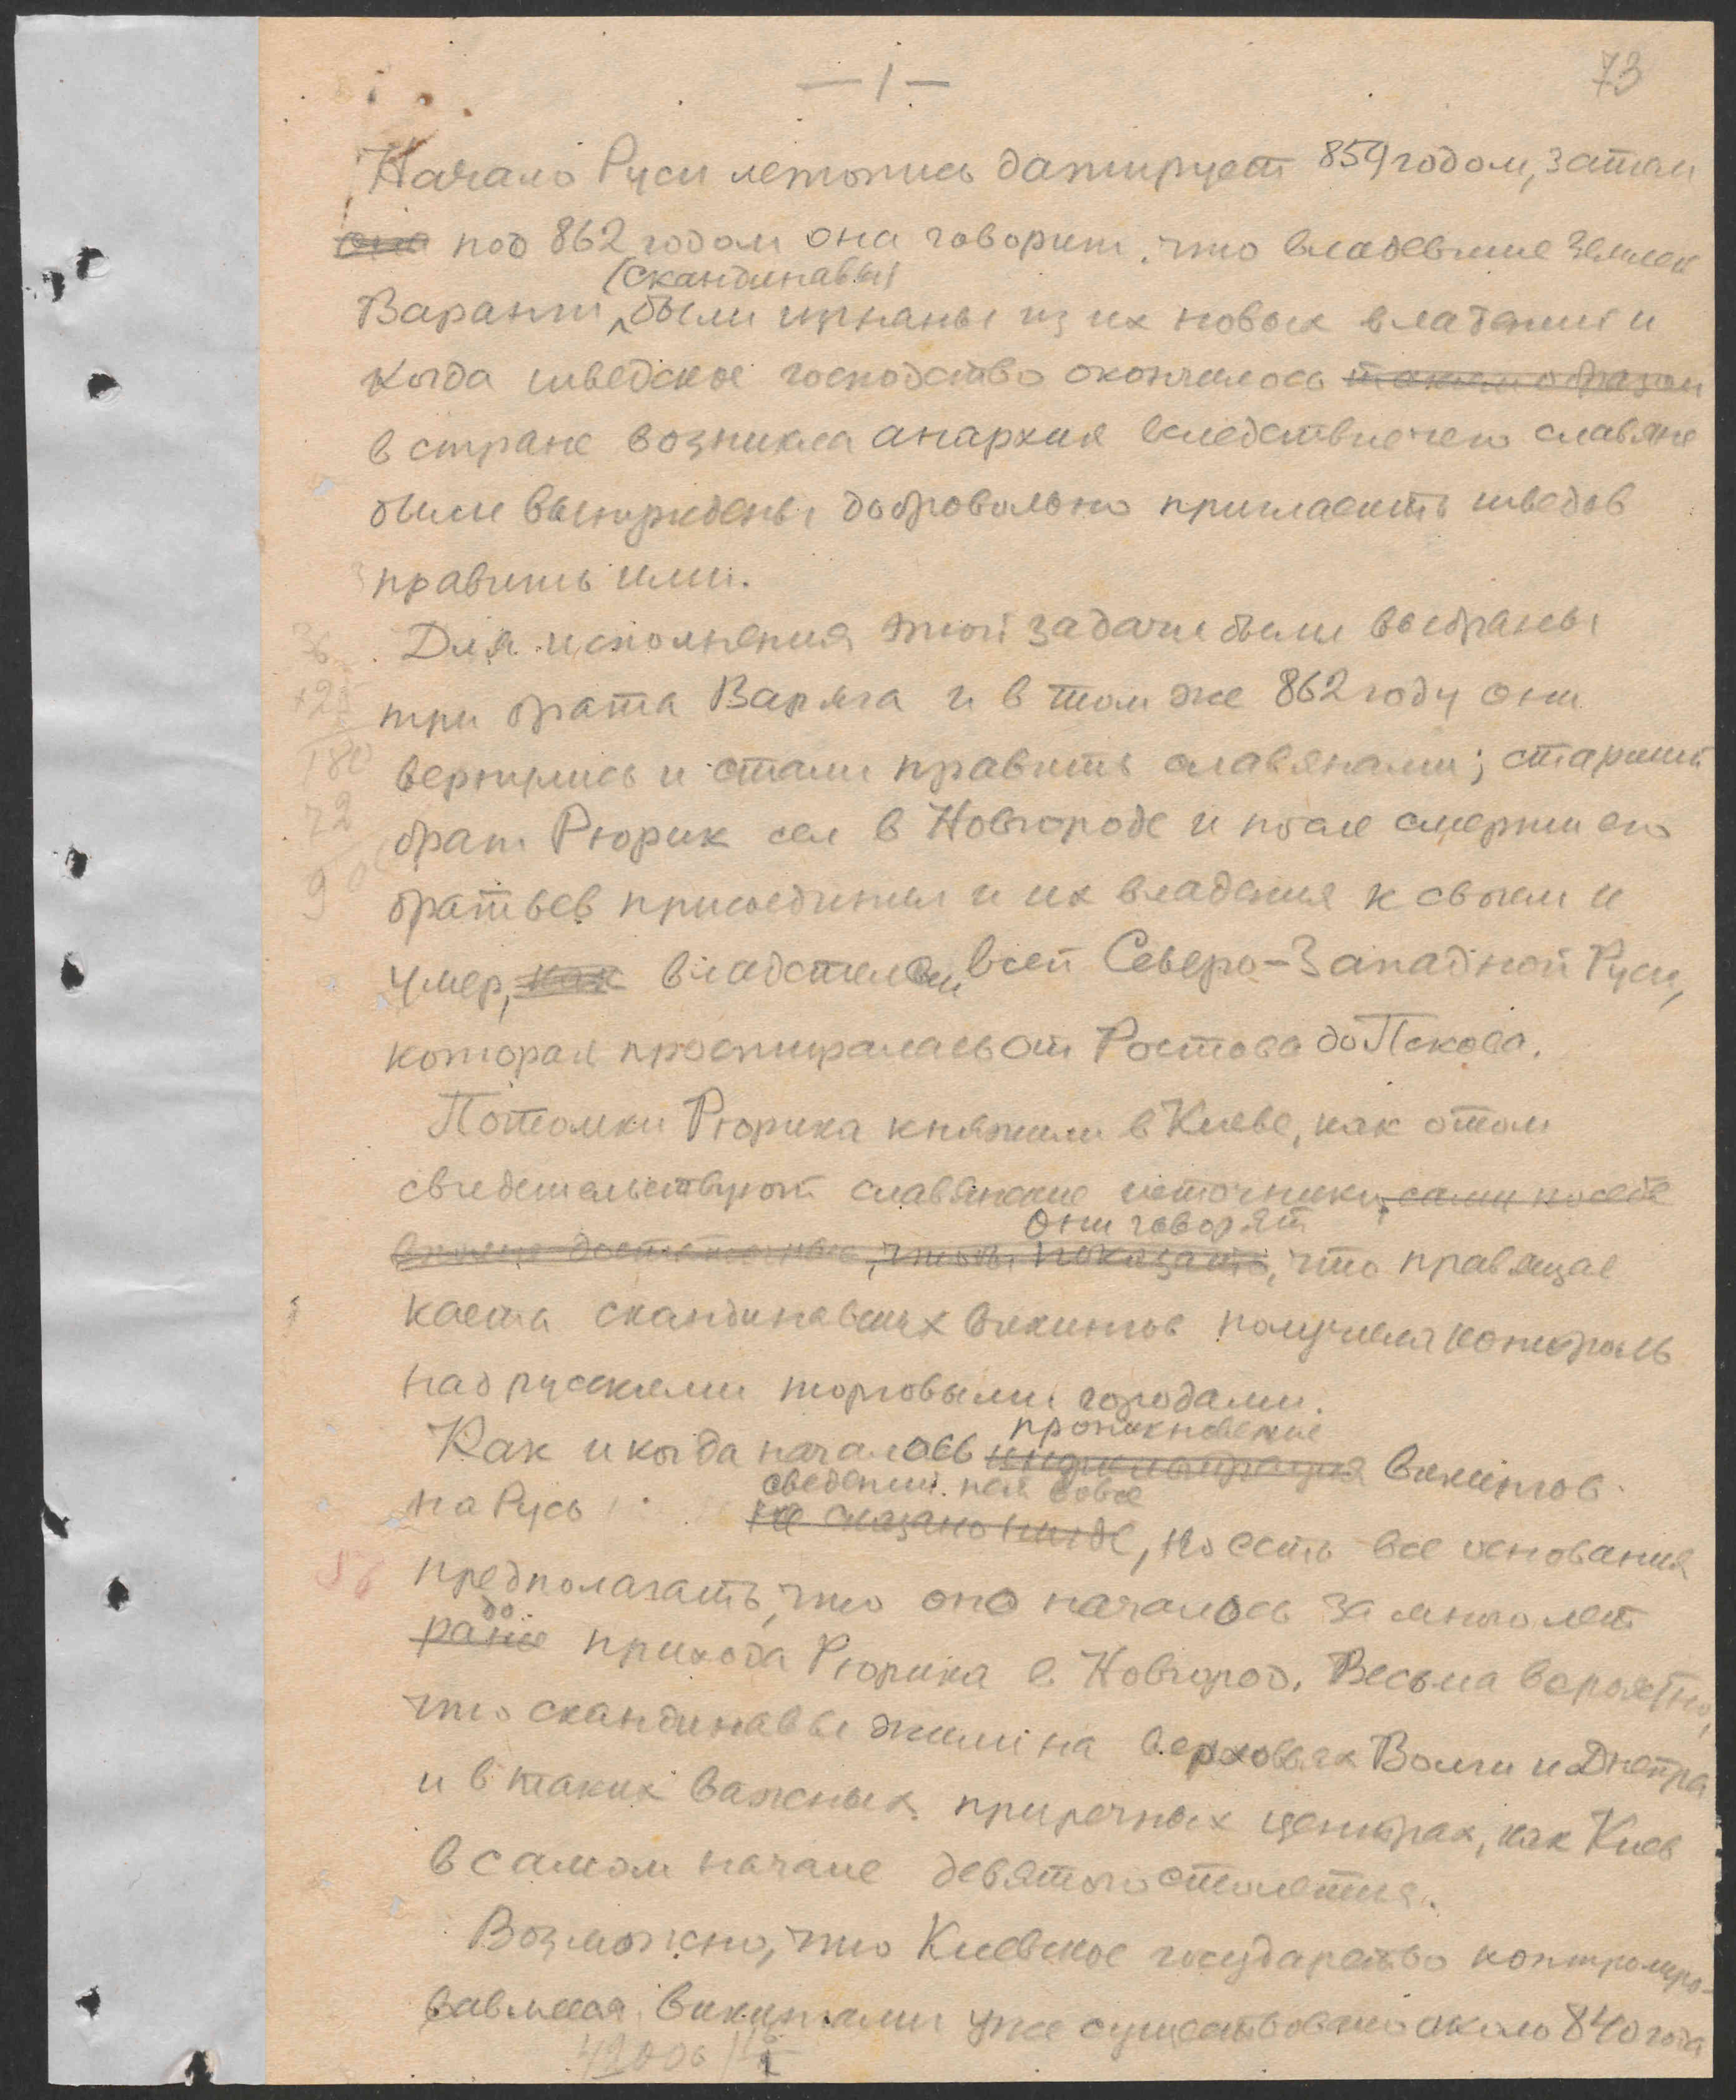 — 1 —
73
Начало Руси летопись датирует 859 годом, затем
она под 862 годом она говорит, что владевшие землей
(скандинавы)
Варанги были изгнаны из их новых владений и
когда шведское господство окончилось таким образом
в стране возникла анархия вследствие чего славяне
были вынуждены добровольно пригласить шведов
править ими.
Для исполнения этой задачи были выбраны
три брата Варяга и в том же 862 году они
вернулись и стали править славянами; старший
брат Рюрик сел в Новгороде и после смерти его
братьев присоединил и их владения к своим и
умер, как владетелем всей Северо-Западной Руси,
которая простиралась от Ростова до Пскова.
Потомки Рюрика княжили в Киеве, как о том
свидетельствуют славянские источники, сами по себе
они говорят
вполне достаточные, чтобы показать, что правящая
каста скандинавских викингов получила контроль
над русскими торговыми городами.
проникновение
Как и когда началось инфильтрация викингов
сведений нам вовсе
на Русь не сказано нигде, но есть все основания
56
предполагать, что оно началось за много лет
до
ранее прихода Рюрика в Новгород. Весьма вероятно,
что скандинавы жили на верховьях Волги и Днепра
и в таких важных приречных центрах, как Киев
в самом начале девятого столетия.
Возможно, что Киевское государство контролиро-
вавшееся викингами уже существовало около 840 года
36
180
72
9